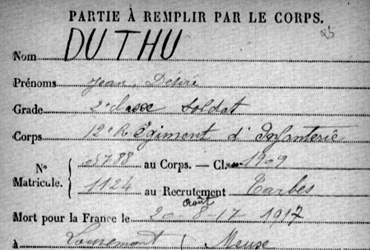 PARTIE À REMPLIR PAR LE CORPS.
Nom DUTHU
Prénoms Jean, Désiré
Grade 2e classe soldat
Corps 12e Régiment d'Infanterie
N° Matricule. 05788 au Corps. — Cl. 1909
1124 au Recrutement Tarbes
Mort pour la France le 20 août 1917
à Louvemont (Meuse